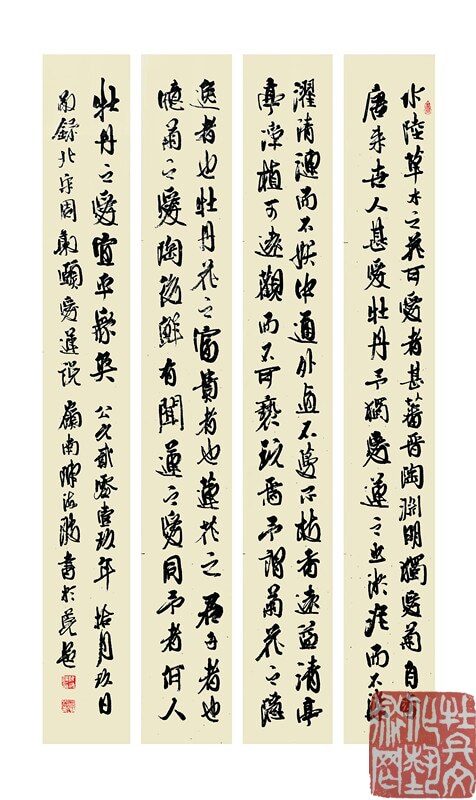 水陸草木之花可愛者甚蕃晉陶淵明獨愛菊自李
唐来世人甚愛牡丹予獨愛蓮之出淤泥而不染
濯清漣而不妖中通外直不蔓不枝香遠益清亭
亭淨植可遠觀而不可褻玩焉予謂菊花之隱
逸者也牡丹花之富貴者也蓮花之君子者也
噫菊之愛陶後鮮有聞蓮之愛同予者何人
牡丹之愛宜乎衆矣 公元貳零壹玖年拾月玖日
錄北宋周敦頤愛蓮說 嶺南陳海書於莞邑